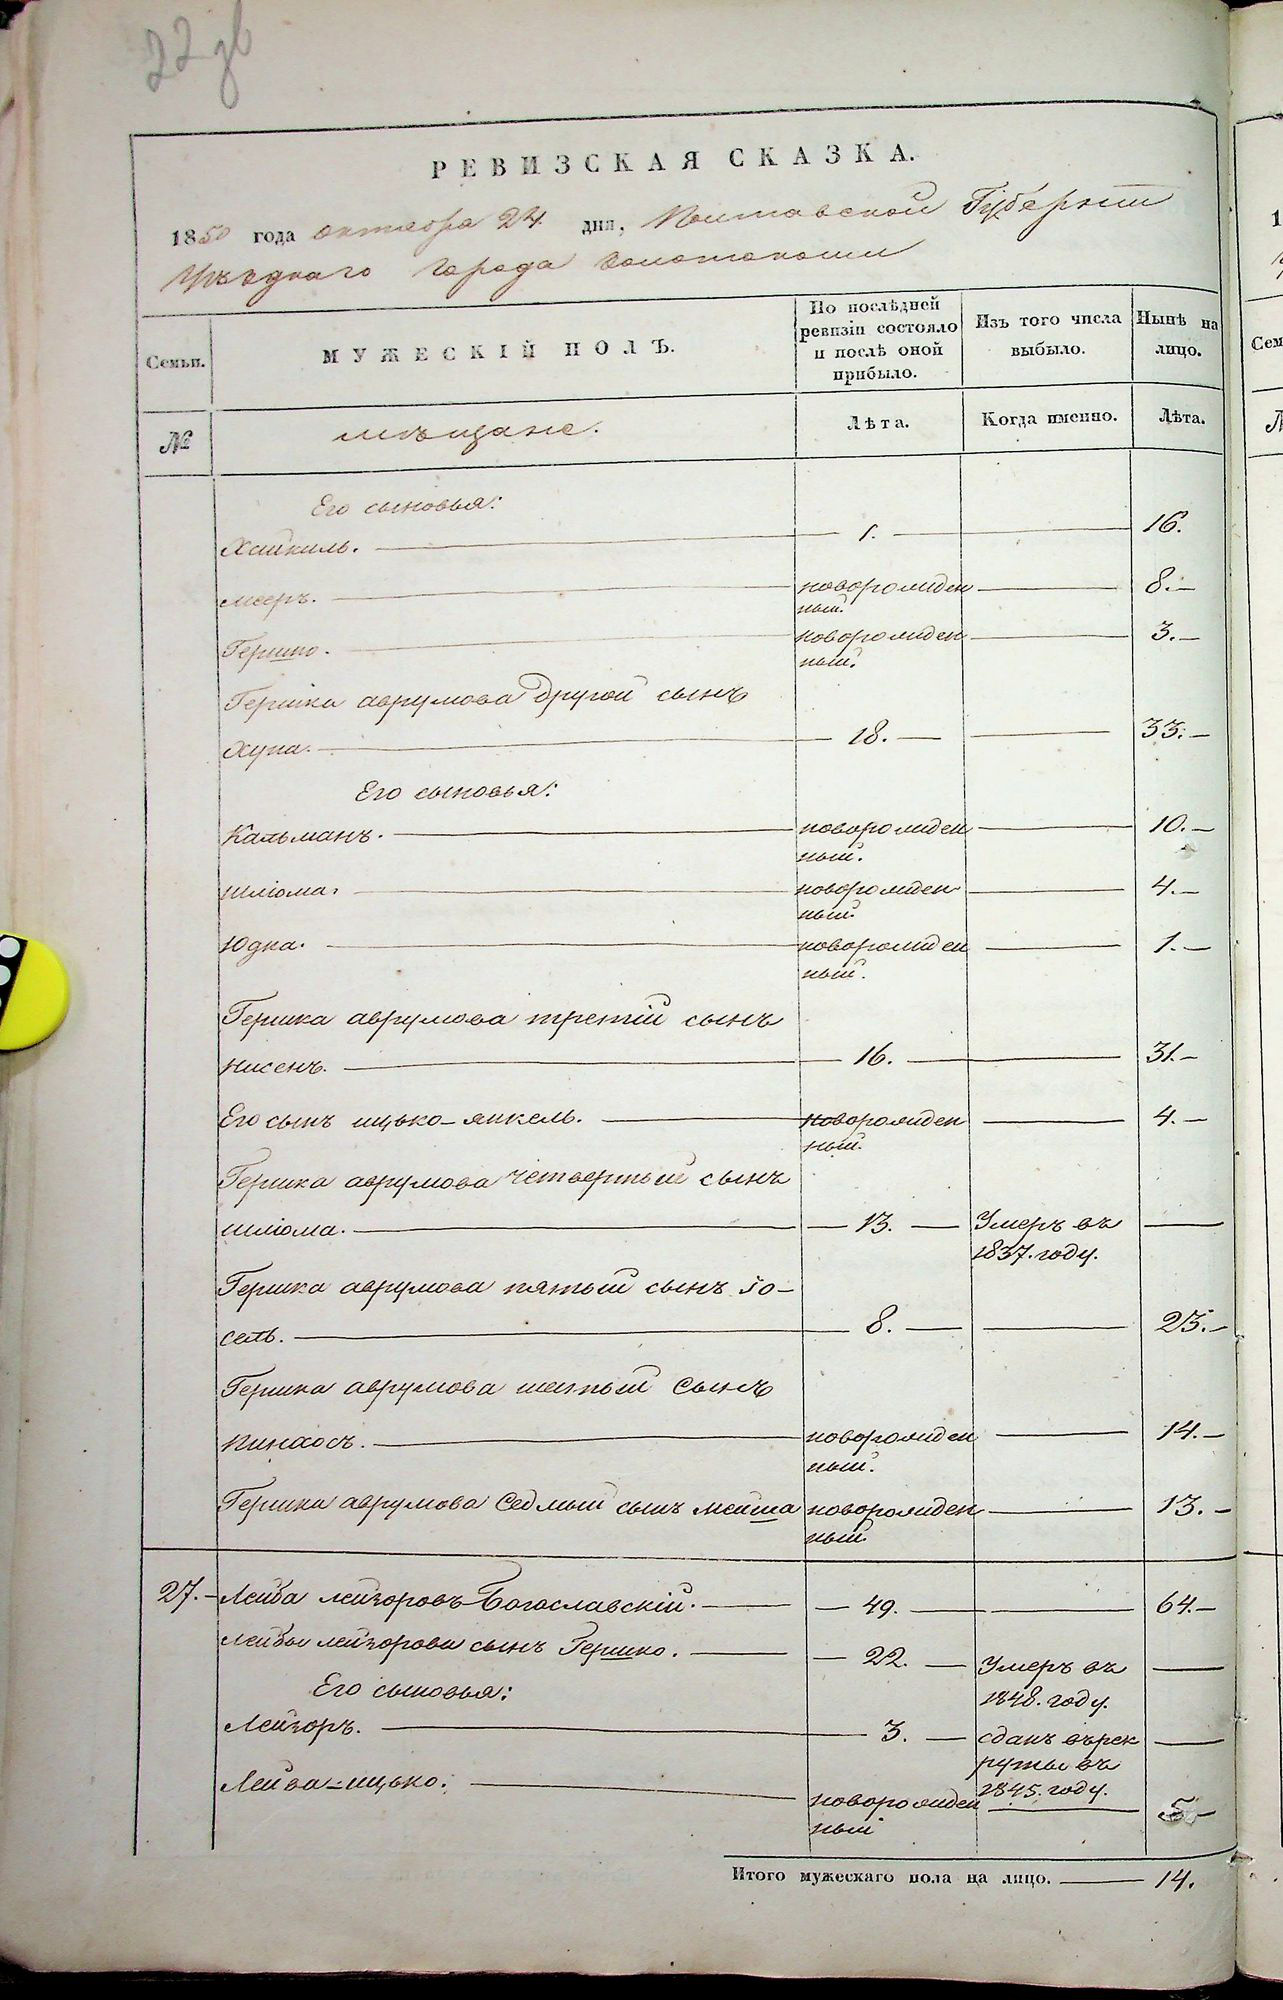 22 зв
РЕВИЗСКАЯ СКАЗКА.
1850 года октября 24 дня, Полтавской Губернии
Уѣзднаго города Золотоноши
Семьи.
МУЖЕСКІЙ ПОЛЪ.
По послѣдней ревизіи состояло и послѣ оной прибыло.
Изъ того числа выбыло.
Нынѣ на лицо.
№
мѣщане.
Лѣта.
Когда именно.
Лѣта.
Его сыновья:
Хайкиль. 1. 16.
Мееръ. новорожденный. 8.
Гершко. новорожденный. 3.
Гершка аврумова другой сынъ
Хуна. 18. 33.
Его сыновья:
Кальманъ. новорожденный. 10.
шліома. новорожденный. 4.
Юдка. новорожденный. 1.
Гершка аврумова третій сынъ
нисенъ. 16. 31.
Его сынъ ицько-янкель. новорожденный. 4.
Гершка аврумова четвертый сынъ
шліома. 13. Умеръ въ 1837. году.
Гершка аврумова пятый сынъ іо-
сель. 8. 23.
Гершка аврумова шестый сынъ
пинхосъ. новорожденный. 14.
Гершка аврумова седмый сынъ мейша новорожденный 13.
27. Лейба лейзоровъ Богославскій. 49. 64.
Лейбы лейзорова сынъ Гершко. 22. Умеръ въ 1848. году.
Его сыновья:
Лейзоръ. 3. сданъ върекруты въ 1845. году.
Лейва-ицько. новорожденный 5
Итого мужескаго пола на лицо. 14.